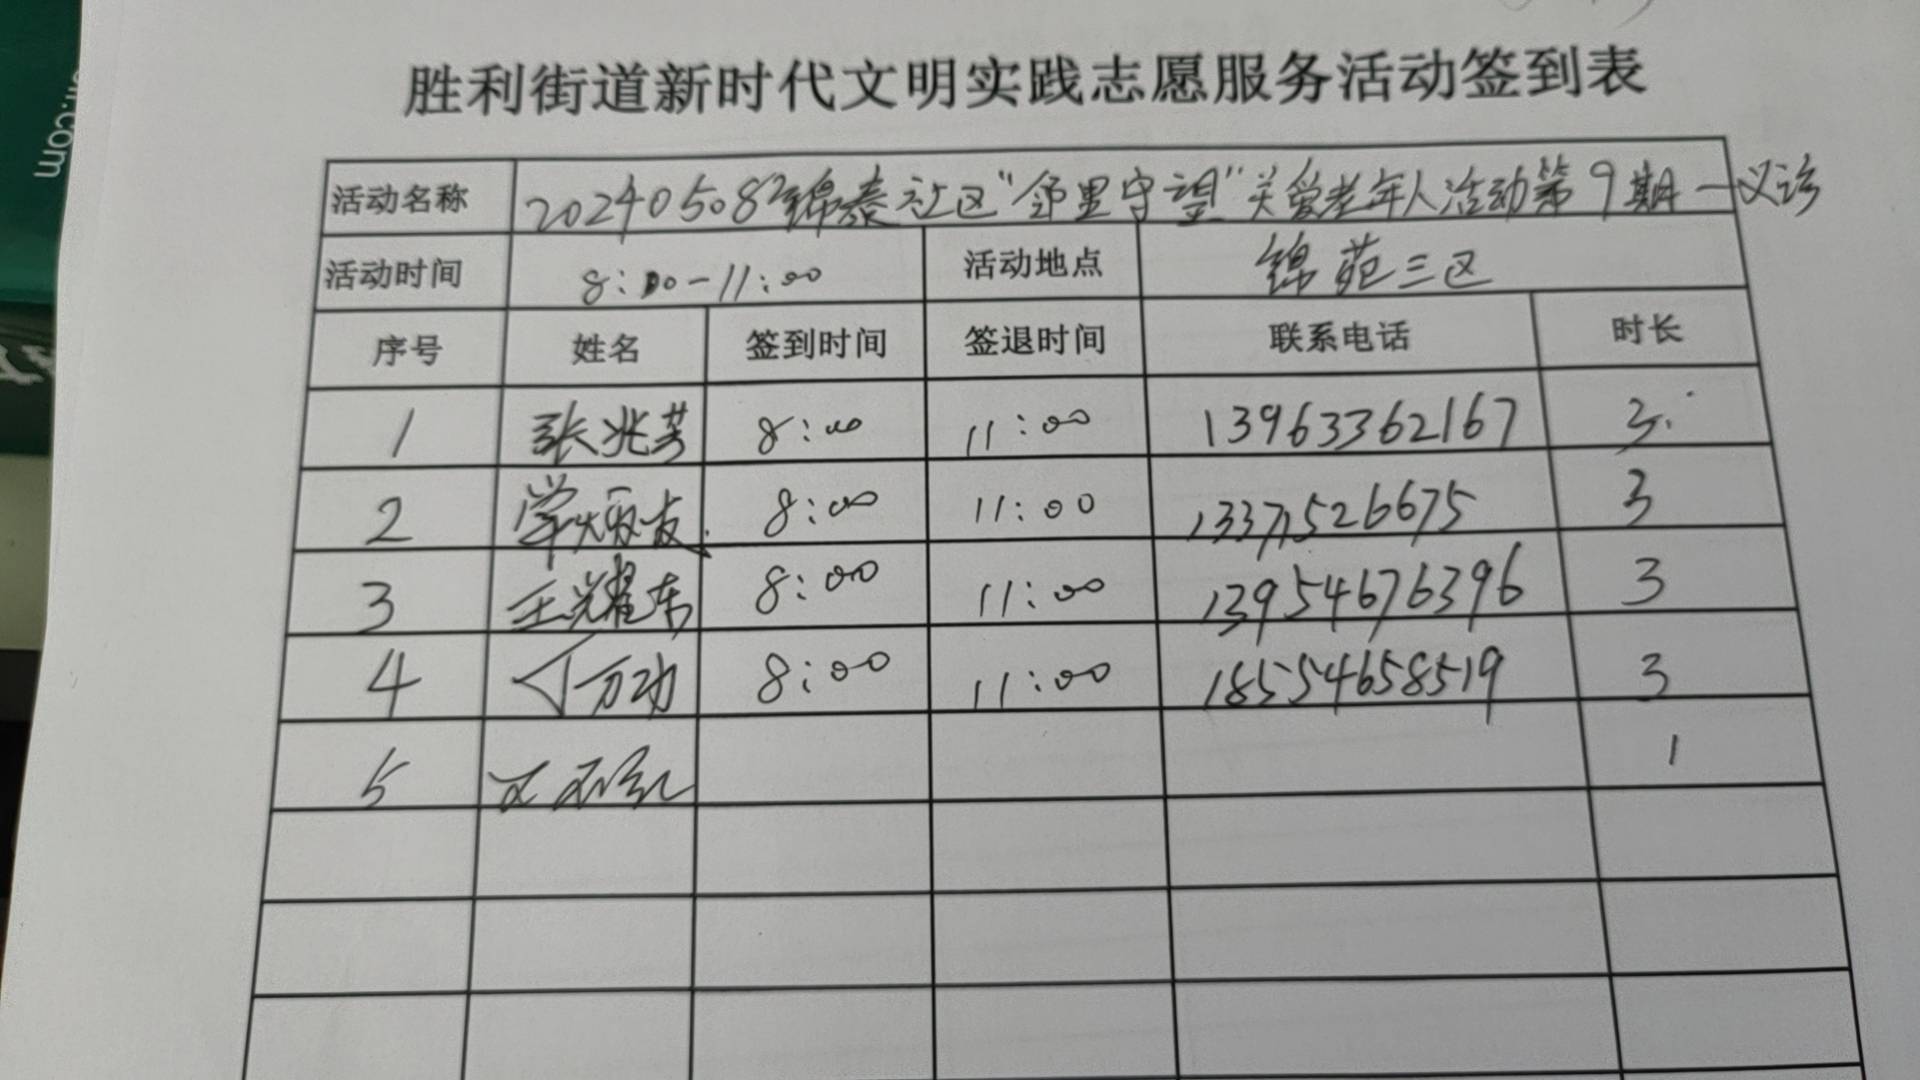 胜利街道新时代文明实践志愿服务活动签到表
活动名称 20240508锦泰社区“邻里守望”关爱老年人活动第9期一义诊
活动时间 8:00-11:00 活动地点 锦苑三区
序号 姓名 签到时间 签退时间 联系电话 时长
1 张兆芳 8:00 11:00 13963362167 3
2 8:00 11:00 13371526675 3
3 王耀东 8:00 11:00 13954676396 3
4 8:00 11:00 18554658519 3
5 1
.com